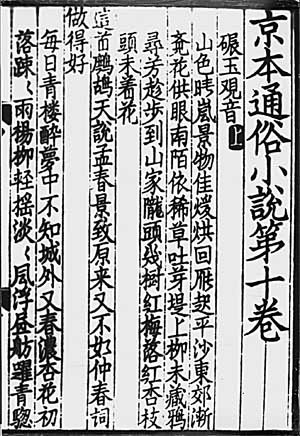 京本通俗小說第十卷
碾玉观音上
山色晴嵐景物佳煖烘回雁起平沙東郊漸
覚花供眼南陌依稀草吐芽堤上柳未藏鸦
尋芳趂步到山家隴頭幾樹紅梅落紅杏枝
頭未着花
這首鹧鸪天說孟春景致原来又不如仲春詞
做得好
每日青楼醉夢中不知城外又春濃杏花初
落踈〻雨楊柳軽揺淡〻風浮画舫躍青騘